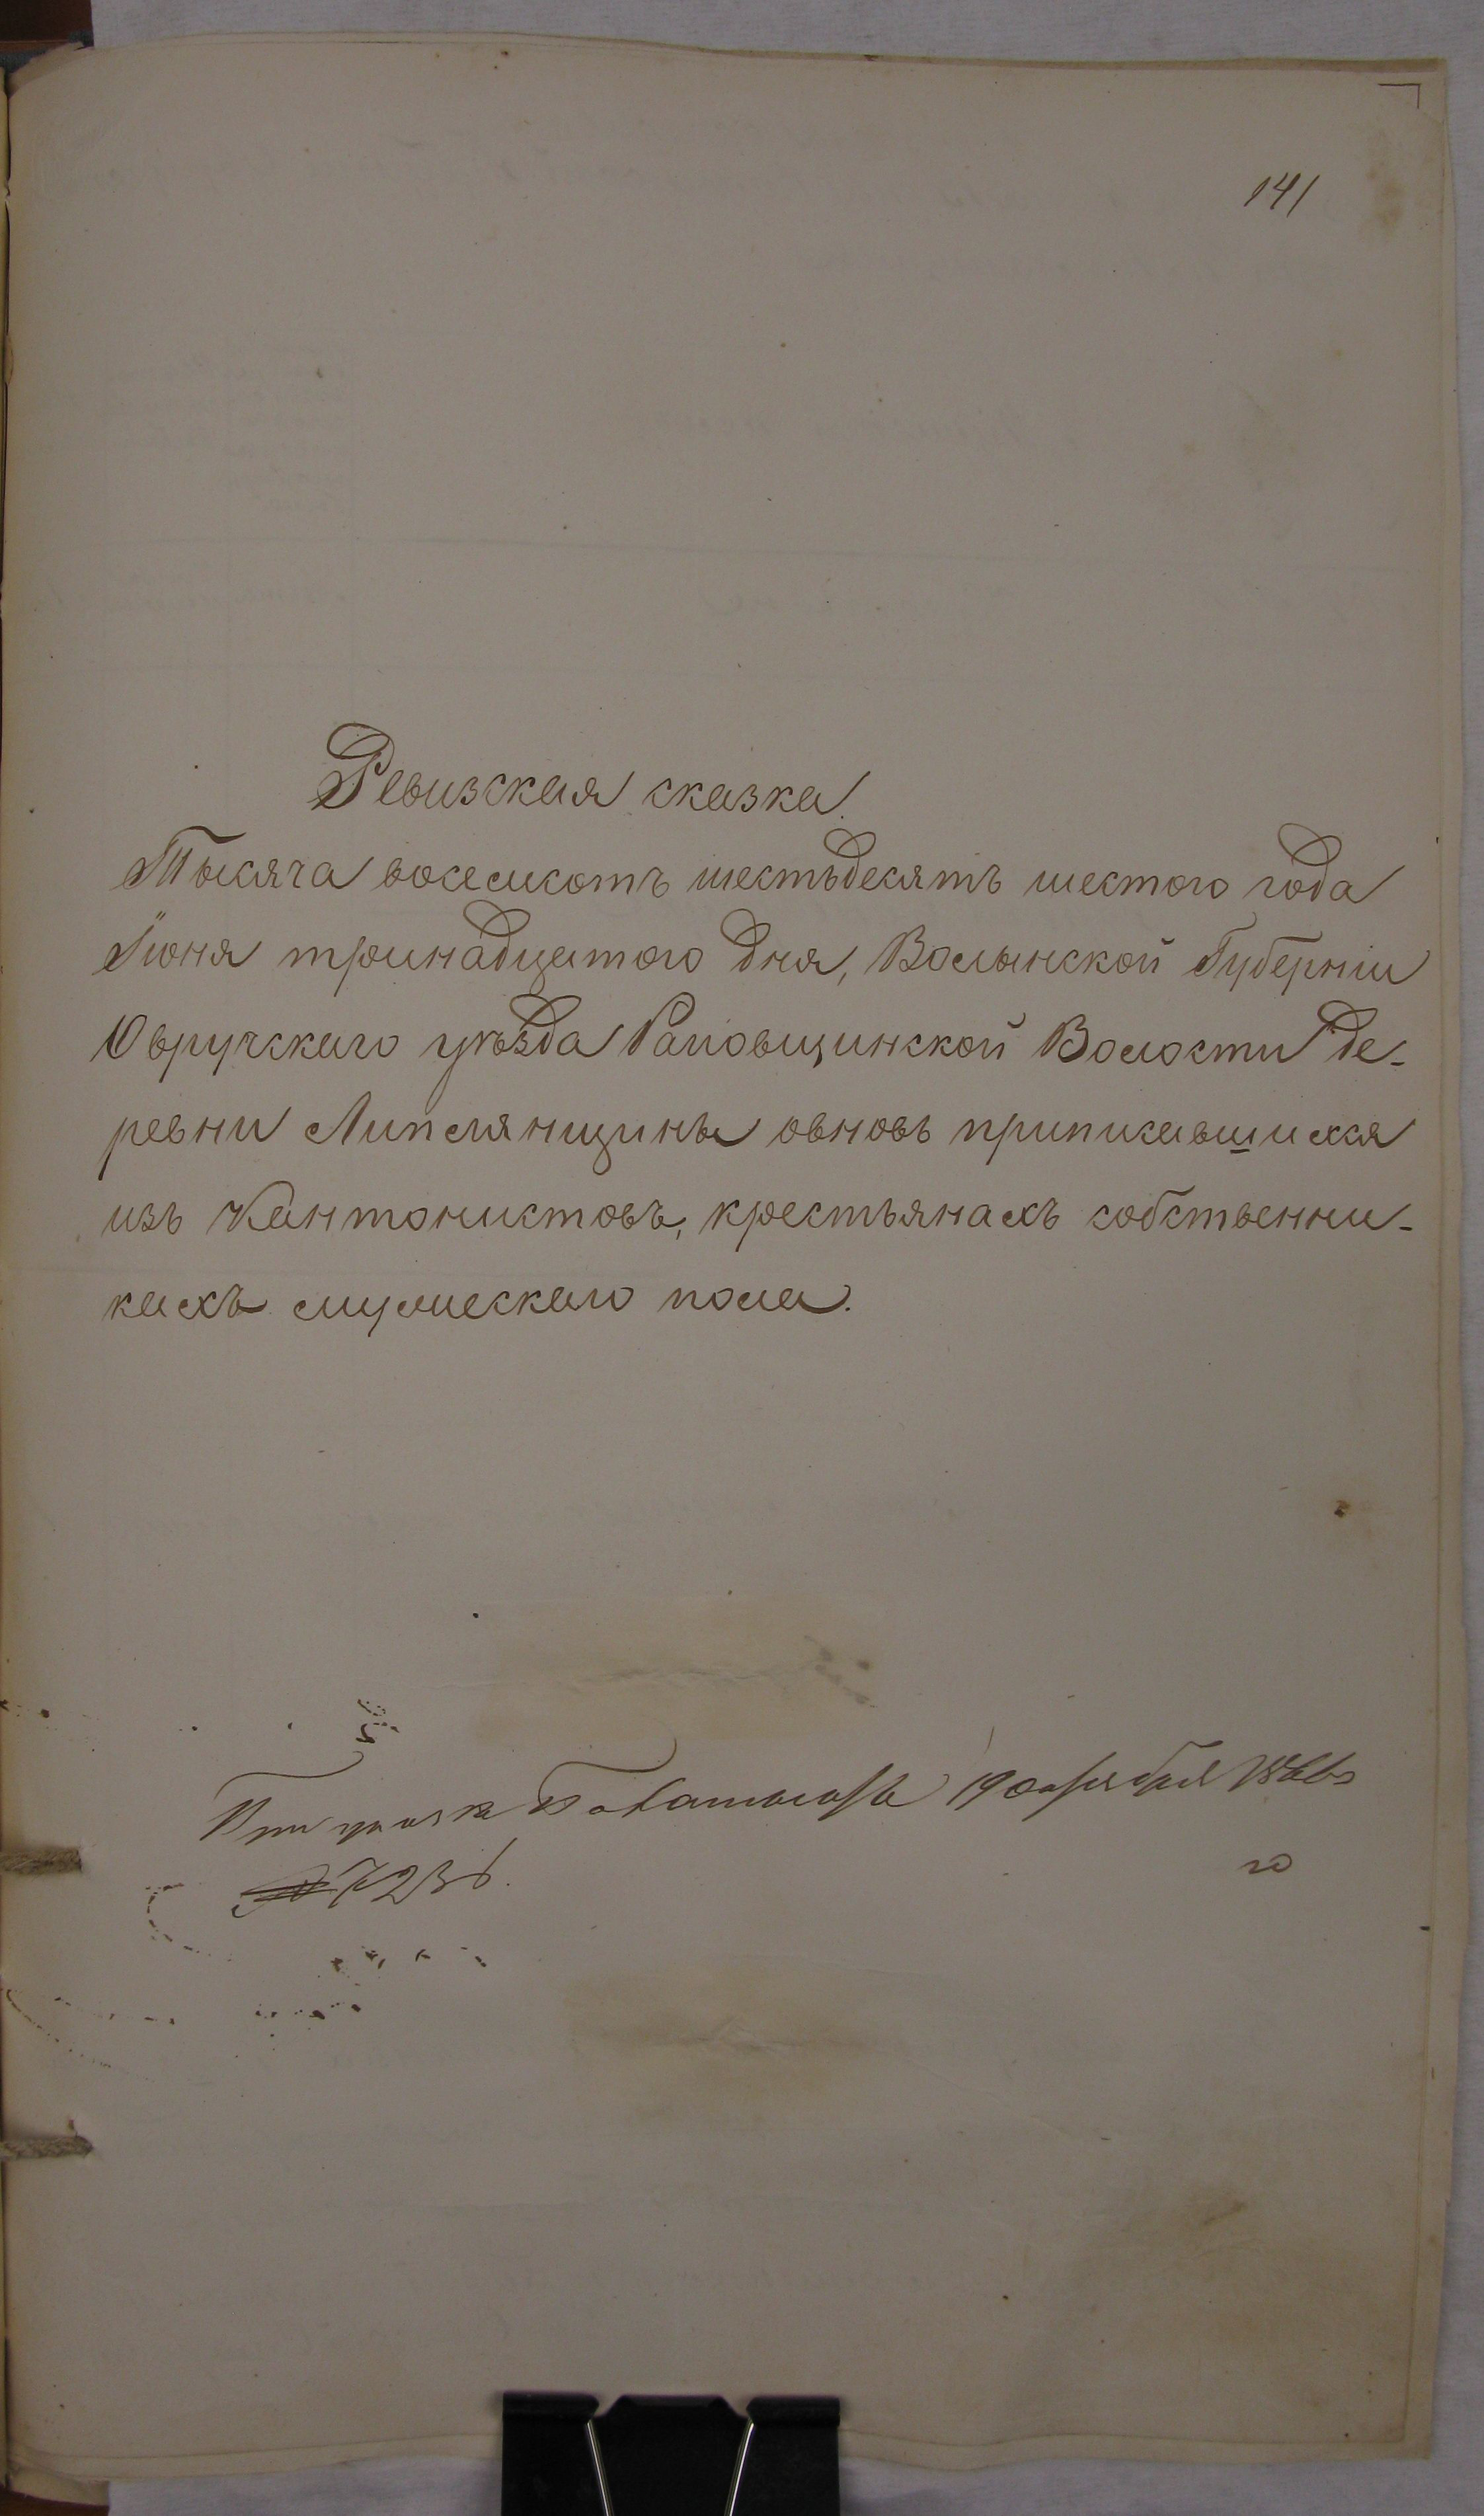 141
Ревизская сказка.
Тысяча восемсотъ шестьдесятъ шестого года
Іюня тринадцатого дня, Волынской Губерніи
Овручскаго уѣзда Раговщинской Волости де-
ревни Липлянщины овновь приписавшихся
изъ Кантонистовъ, крестьянахъ собственни-
кахъ мужескаго пола.
При указѣ 19 1866
№ 7236.
го